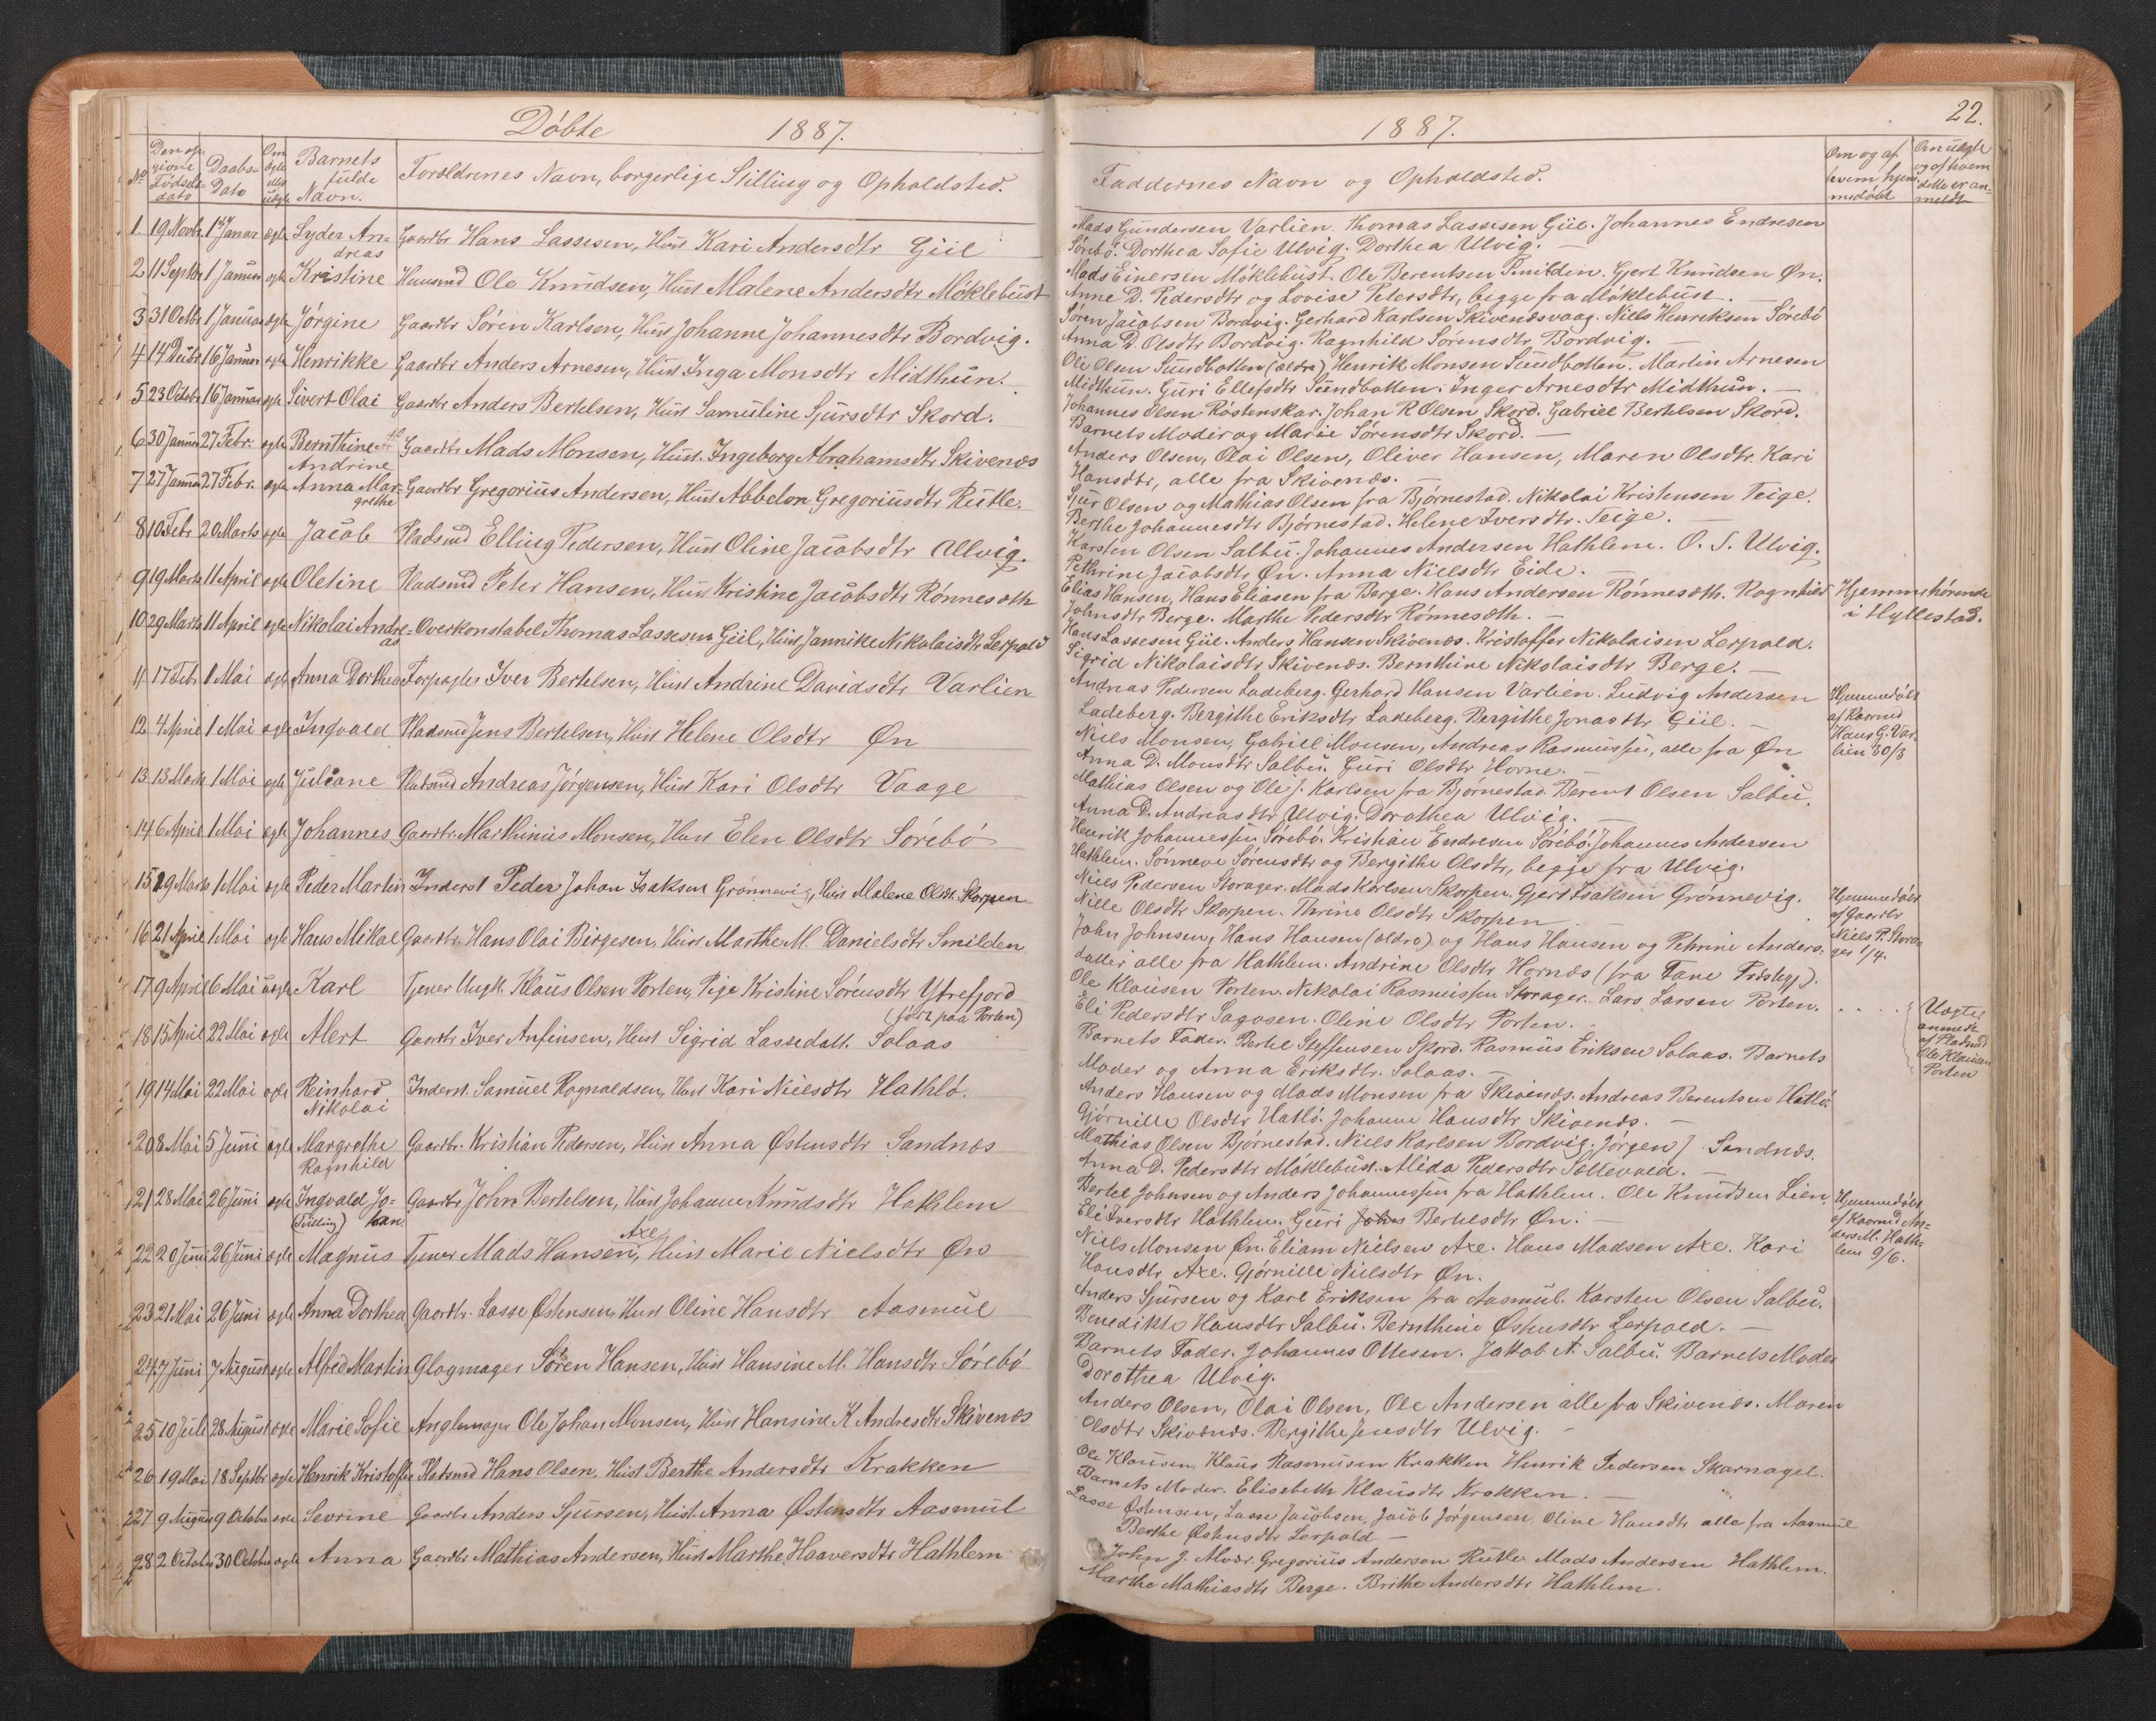 Döbte 1887.
No Den opgivne Födselsdato Daabs-Dato Om ægte eller uægte Barnets fulde Navn. Forældrenes Navn, borgerlige Stilling og Opholdsted.
1 19 Novbr 1 Januar ægte Syder Andreas Gaardbr Hans Lassesen, Hust Kari Andersdtr Giil
2 11 Septbr 1 Januar ægte Kristine Huusmd Ole Knudsen, Hust Malene Andersdtr Möklebust
3 31 Octbr 1 Januar ægte Jörgine Gaardbr Sören Karlsen, Hust Johanne Johannesdtr Bordvig.
4 14 Decbr 16 Januar ægte Henrikke Gaardbr Anders Arnesen, Hust Inga Monsdtr Midthun.
5 23 Octobr 16 Januar ægte Sivert Olai Gaardbr Anders Bertelsen, Hust Samuline Sjursdtr Skord.
6 30 Januar 27 Febr. ægte Bernthine Andrine Gaardbr Mads Monsen, Hust. Ingeborg Abrahamsdtr Skivenæs
7 27 Januar 27 Febr. ægte Anna Margrethe Gaardbr Gregorius Andersen, Hust Abbelon Gregoriusdtr Rutle.
8 10 Febr 20 Marts ægte Jacob Pladsmd Elling Pedersen, Hust Oline Jacobsdtr Ulvig.
9 19 Marts 11 April ægte Oletine Pladsmd Peter Hansen, Hust Kristine Jacobsdtr Rönnesøth
10 29 Marts 11 April ægte Nikolai Andreas Overkonstabel Thomas Lassesen Giil, Hust Jannike Nikolaisdtr Lerpold
11 17 Febr 1 Mai ægte Anna Dorthea Forpagter Iver Bertelsen, Hust Andrine Davidsdtr Varlien
12 4 April 1 Mai ægte Ingvald Pladsmd Jens Bertelsen, Hust Helene Olsdtr Øn
13 13 Marts 1 Mai ægte Juliane Pladsmd Andreas Jörgensen, Hust Kari Olsdtr Vaage
14 6 April 1 Mai ægte Johannes Gaardbr. Marthinus Monsen, Hust Elen Olsdtr Sörebö
15 29 Marts 1 Mai ægte Peder Martin Inderst Peder Johan Isaksen Grönnevig, Hust Malene Olsdtr. Skorpen
16 21 April 1 Mai ægte Hans Mikal Gaardbr. Hans Olai Birgesen, Hust Marthe M. Danielsdtr Smilden
17 9 April 6 Mai uægte Karl Tjener Ungk. Klaus Olsen Porten, Pige Kristine Sörensdtr Ytrefjord
(födt paa Porten)
18 15 April 22 Mai ægte Alert Gaardbr Iver Anfinsen, Hust Sigrid Lassedatt. Solaas
19 14 Mai 22 Mai ægte Reinhard Nikolai Inderst. Samuel Ragnaldsen, Hust Kari Nielsdtr Hathlö.
20 8 Mai 5 Juni ægte Margrethe Ragnhild Gaardbr. Kristian Pedersen, Hust Anna Østensdtr Sandnæs
21 28 Mai 26 Juni ægte Ingvald Johan (Tvilling) Gaardbr John Bertelsen, Hust Johanne Knudsdtr Hathlem
22 20 Juni 26 Juni ægte Magnus Tjener Mads Hansen Axe, Hust Marie Nielsdtr Øn
23 21 Mai 26 Juni ægte Anna Dorthea Gaardbr. Lasse Østensen, Hust Oline Hansdtr Aasmul
24 7 Juni 7 August ægte Alfred Martin Glagmager Sören Hansen, Hust Hansine M. Hansdtr Sörebö
25 10 Juli 28 August ægte Marie Sofie Anglemager Ole Johan Monsen, Hust Hansine K Andresdtr Skivenæs
26 19 Mai 18 Septbr ægte Henrik Kristoffer Pladsmd Hans Olsen, Hust Berthe Andersdtr Krakken
27 9 August 9 October ægte Sevrine Gaardbr Anders Sjursen, Hust. Anna Østensdtr Aasmul
28 2 October 30 October ægte Anna Gaardbr Mathias Andersen, Hust Marthe Haaversdtr Hathlem
22.
1887.
Faddernes Navn og Opholdsted.
Om og af hvem hjemmedöbt
Om uægte og af hvem dette er anmeldt
Mads Gundersen Varlien. Thomas Lassesen Giil. Johannes Endresen
Sörebö. Dorthea Sofie Ulvig. Dorthea Ulvig. —
Mads Einersen Möklebust. Ole Berentsen Smilden. Gjert Knudsen Øn.
Anne D. Pedersdtr og Lovise Petersdtr, begge fra Möklebust. —
Sören Jacobsen Bordvig. Gerhard Karlsen Skivenæsvaag. Niels Henriksen Sörebö
Anna D. Olsdtr Bordvig. Ragnhild Sörensdtr Bordvig. —
Ole Olsen Sundbotten (ældre) Henrik Monsen Sundbotten. Martin Arnesen
Midthun. Guri Ellefsdtr Sundbotten. Inger Arnesdtr Midthun. —
Johannes Olsen Röstenskar. Johan R Olsen Skord. Gabriel Bertelsen Skord.
Barnets Moder og Marie Sörensdtr Skord. —
Anders Olsen, Olai Olsen, Oliver Hansen, Maren Olsdtr. Kari
Hansdtr, alle fra Skivenæs. —
Sjur Olsen og Mathias Olsen fra Björnestad. Nikolai Kristensen Teige.
Berthe Johannesdtr Björnestad. Helene Iversdtr. Teige. —
Karsten Olsen Salbu. Johannes Andersen Hathlem. O. S. Ulvig.
Pethrine Jacobsdtr Øn. Anna Nielsdtr Eide. —
Elias Hansen, Hans Eliasen fra Berge. Hans Andersen Rönnesøth. Ragnhild
Johnsdtr Berge. Marthe Pedersdtr Rönnesøth. —
Hjemmehörende
i Hyllestad.
Hans Lassesen Giil. Anders Hansen Skivenæs. Kristoffer Nikolaisen Lerpold.
Sigrid Nikolaisdtr Skivenæs. Bernthine Nikolaisdtr Berge. —
Andreas Pedersen Ladeberg. Gerhard Hansen Varlien. Ludvig Andersen
Ladeberg. Bergithe Eriksdtr Ladeberg. Bergithe Jonasdtr Giil. —
Hjemmedöbt
af Kaarmd
Hans G. Var-
lien 30/3
Niels Monsen, Gabriel Monsen, Andreas Rasmussen, alle fra Øn
Anna D. Monsdtr Salbu. Guri Olsdtr Hovne. —
Mathias Olsen og Ole J. Karlsen fra Björnestad. Berent Olsen Salbu.
Anna D. Andreasdtr Ulvig. Dorothea Ulvig. —
Henrik Johannessen Sörebö. Kristian Endresen Sörebö. Johannes Andersen
Hathlem. Sönneve Sörensdtr og Bergithe Olsdtr, begge fra Ulvig.
Niels Pedersen Storager. Mads Karlsen Skorpen. Gjert Isaksen Grönnevig.
Nille Olsdtr Skorpen. Thrine Olsdtr Skorpen
Hjemmedöbt
af Gaardbr
Niels P. Stora-
ger 1/4.
John Johnsen, Hans Hansen (ældre) og Hans Hansen og Pethrine Anders-
datter alle fra Hathlem. Andrine Olsdtr Hornæs (fra Fane Præstegj).
Ole Klausen Porten. Nikolai Rasmussen Storager. Lars Larsen Porten.
Eli Pedersdtr Sagosen. Oline Olsdtr Porten. —
Uægte
anmeldt
af Pladsmd
Ole Klausen
Porten
Barnets Fader. Bertel Steffensen Skord. Rasmus Eriksen Solaas. Barnets
Moder og Anna Eriksdtr. Solaas. —
Anders Hansen og Mads Monsen fra Skivenæs. Andreas Berentsen Hatlö
Gjörnille Olsdtr Hatlö. Johanne Hansdtr Skivenæs. —
Mathias Olsen Björnestad. Niels Karlsen Bordvig. Jörgen J. Sandnæs.
Anna D. Pedersdtr Möklebust. Alida Pedersdtr Sollevold. —
Bertel Johnsen og Anders Johannessen fra Hathlem. Ole Knudsen Lien.
Eli Iversdtr Hathlem. Guri Johns Bertelsdtr Øn. —
Hjemmedöbt
af Kaarmd An-
ders M. Hath-
lem 9/6.
Niels Monsen Øn. Eliam Nielsen Axe. Hans Madsen Axe. Kari
Hansdtr Axe. Gjörnille Nielsdtr Øn.
Anders Sjursen og Karl Eriksen fra Aasmul. Karsten Olsen Salbu.
Benedikte Hansdtr Salbu. Bernthine Østensdtr Lerpold. —
Barnets Fader. Johannes Ottesen. Jakob A. Salbu. Barnets Moder
Dorothea Ulvig.
Anders Olsen, Olai Olsen, Ole Andersen alle fra Skivenæs. Maren
Olsdtr Skivenæs. Bergithe Jensdtr Ulvig. —
Ole Klausen, Klaus Rasmusen Krakken Henrik Pedersen Skarnagel.
Barnets Moder. Elisebeth Klausdtr Krakken. —
Lasse Østensen, Lasse Jacobsen, Jacob Jörgensen. Oline Hansdtr alle fra Aasmul
Berthe Østensdtr Lerpold. —
John J. Alvær. Gregorius Andersen Rutle Mads Andersen Hathlem.
Marthe Mathiasdtr Berge. Brithe Andersdtr Hathlem.